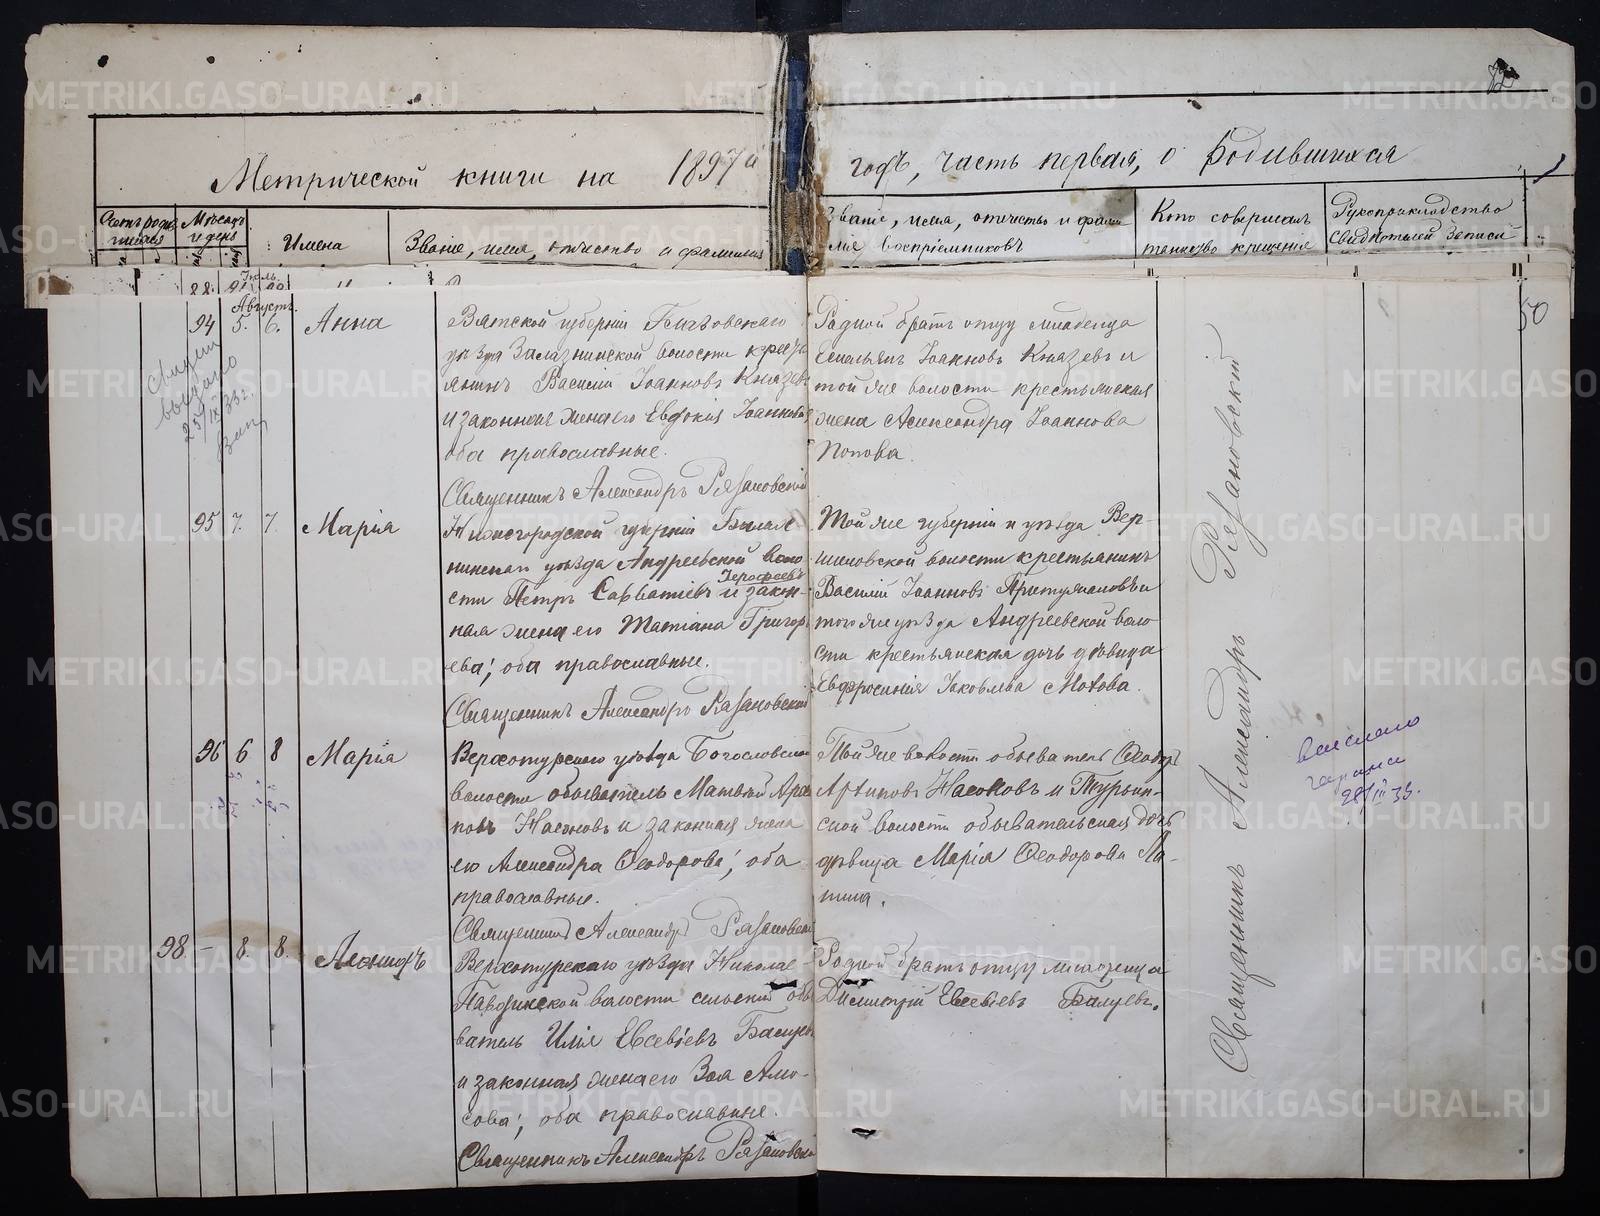 Метрической книги на 1897й годъ, часть первая, о Родившихся
Мѣсяцъ и день
Имена
Званіе, имя, отчество и фамилія
Званіе, имя, отчество и фами
лія воспріемниковъ
Кто совершалъ
таинство крещенія
Рукоприкладство
свидѣтелей записи
Іюль
50
Августъ.
94 5. 6. Анна
Вятской губерніи Глазовскаго
уѣзда Залазнинской волости кресть
янинъ Василій Іоанновъ Князевъ
и законная жена его Евдокія Іоаннова
оба православные.
Священникъ Александръ Рязановскій
Родной братъ отцу младенца
Емельянъ Іоанновъ Князевъ и
той же волости крестьянская
жена Александра Іоаннова
Попова.
выдано
25/IX 33г.
95 7. 7. Марія
Нижегородской губерніи
уѣзда Андреевской воло
Іерофеевъ
сти Петръ Савватіевъ и закон-
ная жена его Татіана Григорь
ева; оба православные.
Священникъ Александръ Рязановскій
Той же губерніи и уѣзда Вер-
шиловской волости крестьянинъ
Василій Іоанновъ
того же уѣзда Андреевской воло
сти крестьянская дочь дѣвица
Евфросинія Іаковлева Мохова.
96 6 8 Марія
Верхотурскаго уѣзда Богословской
волости обыватель Матвѣй Архи
повъ Насоновъ и законная жена
его Александра Ѳеодорова; оба
православные.
Священникъ Александръ Рязановскій
Той же волости обыватель Ѳеодоръ
Архиповъ Насоновъ и Турьин-
ской волости обывательская дочь
дѣвица Марія Ѳеодорова Ла-
пина.
28/III 33.
98. – 8. 8. Леонидъ
Верхотурскаго уѣзда Николае-
Павдинской волости сельскій обы
ватель Илія Евсевіевъ Балуевъ
и законная жена его Зоя Амо-
сова; оба православные.
Священникъ Александръ Рязановскій
Родной братъ отцу младенца
Димитрій Евсевіевъ Балуевъ.
Священникъ Александръ Рязановскій
METRIKI.GASO-URAL.RU